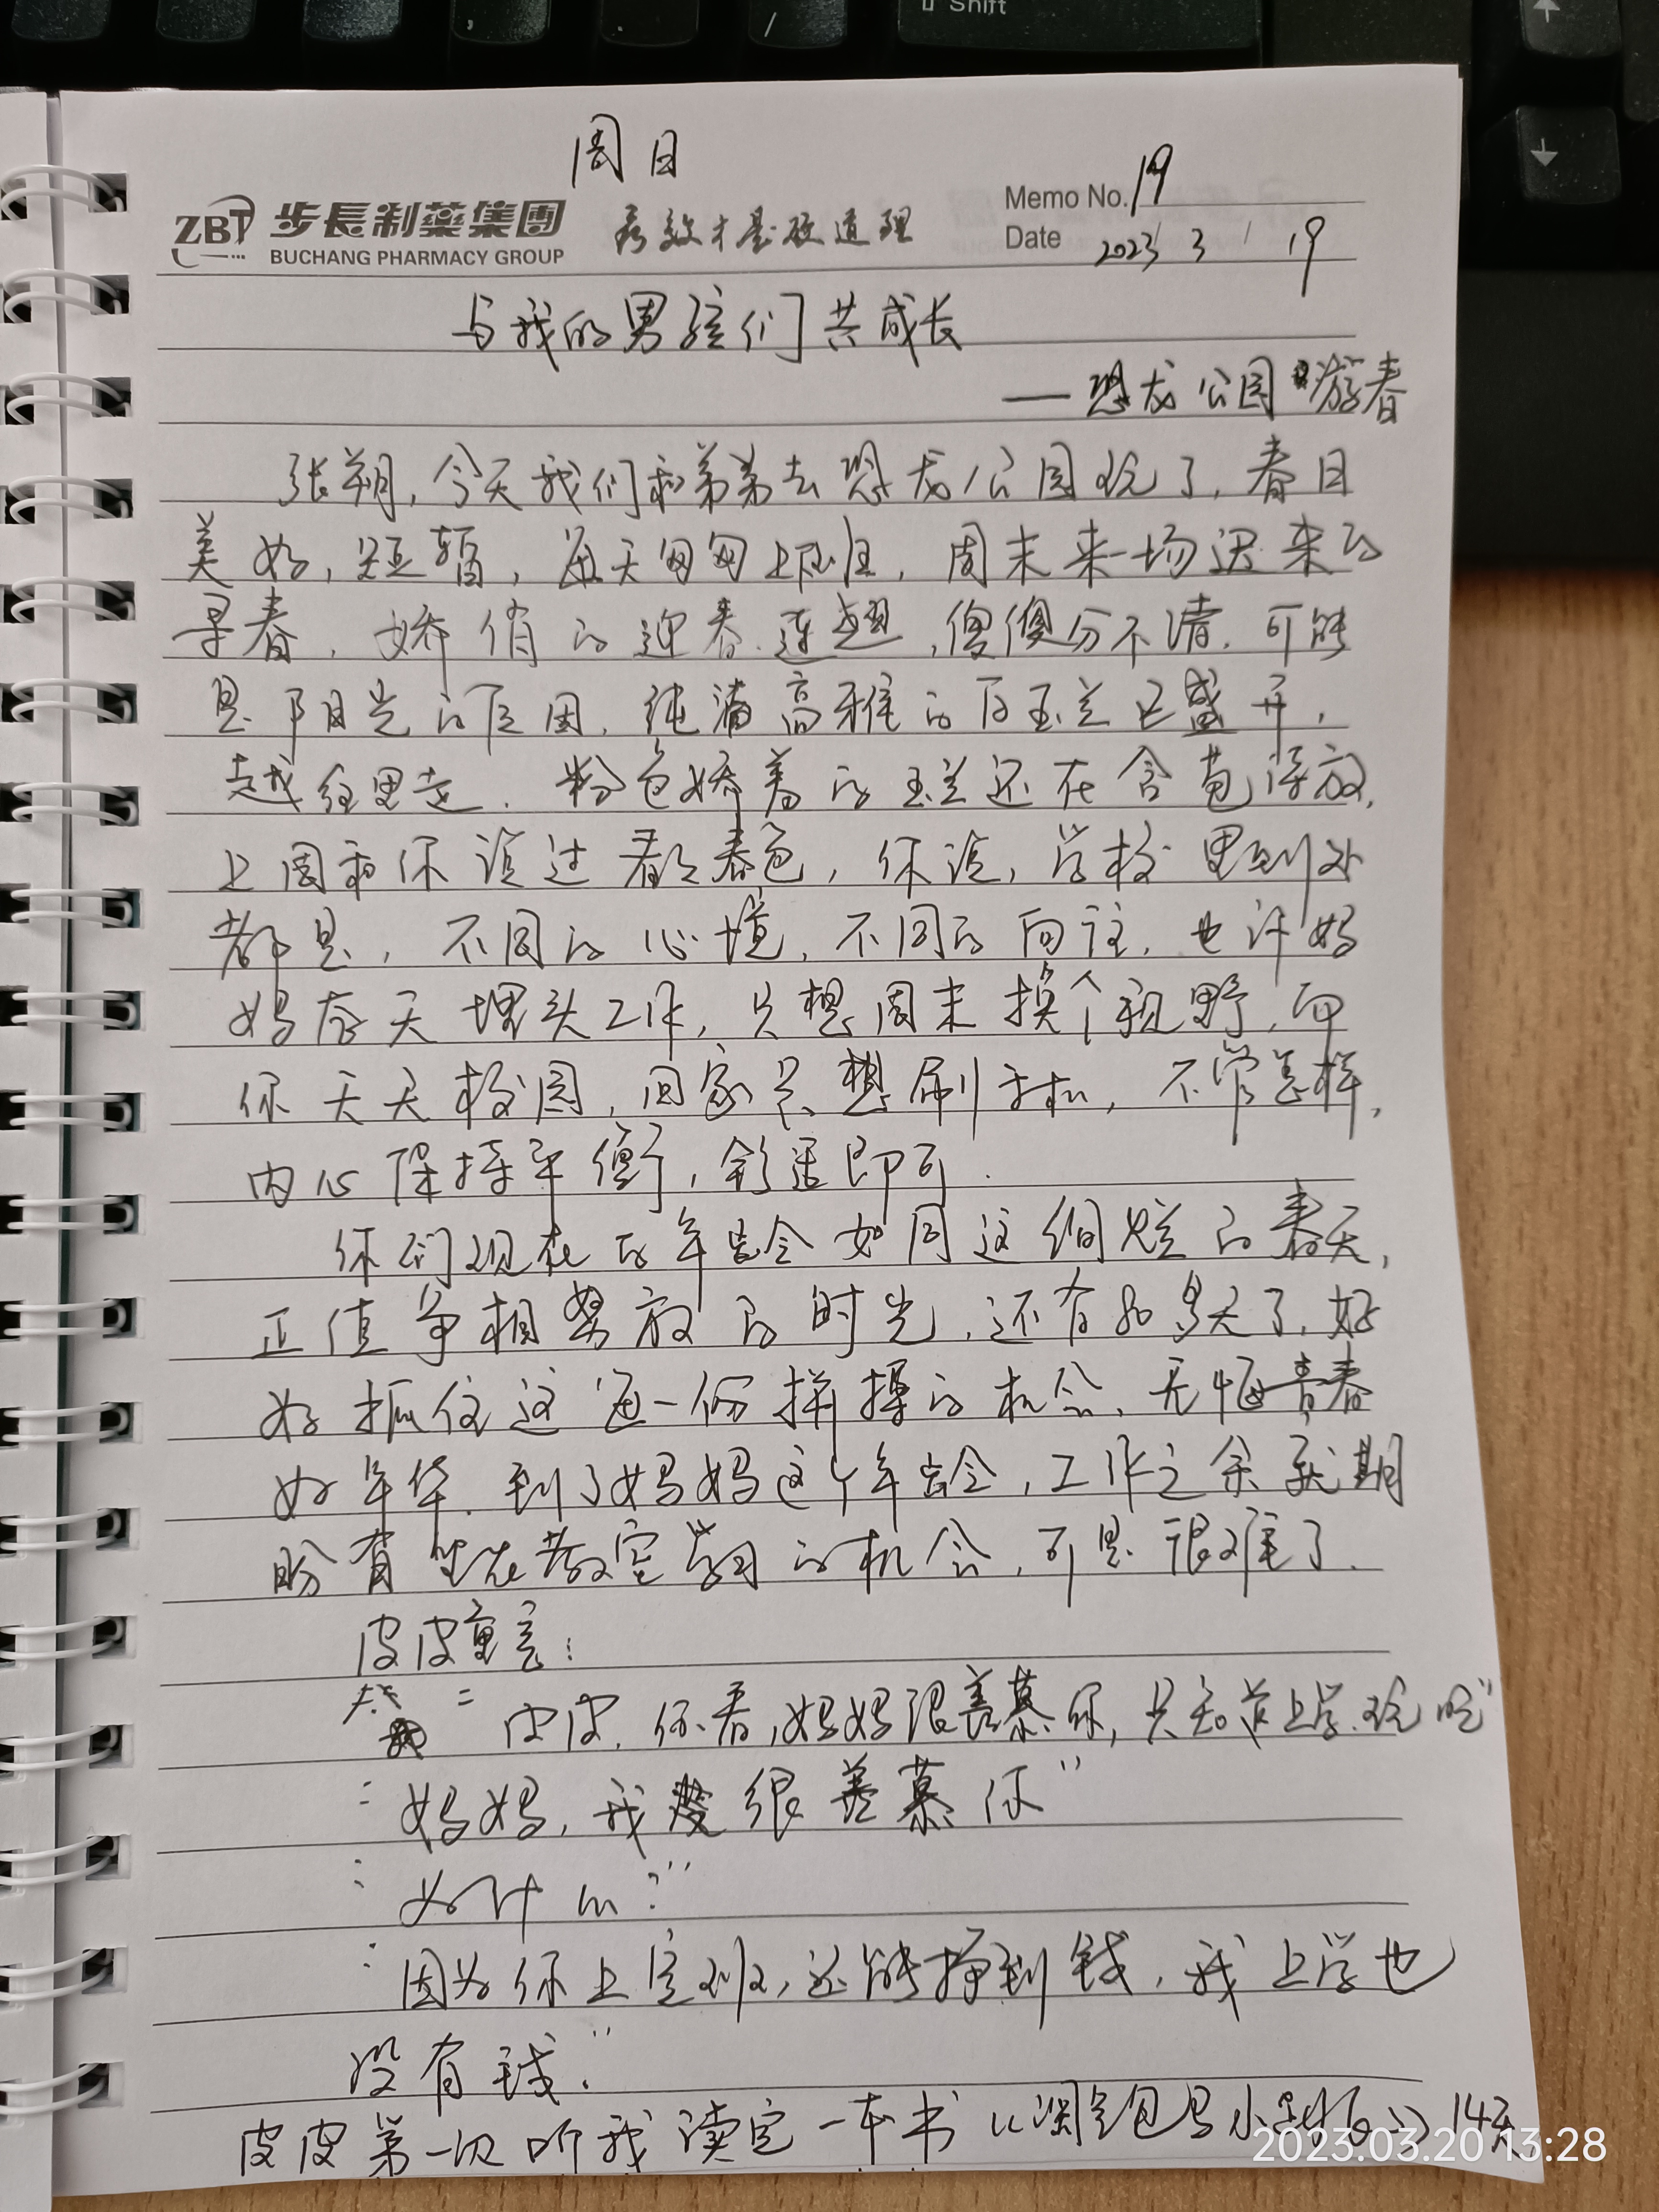 Shift
周日
ZBT 步長制藥集團
BUCHANG PHARMACY GROUP
疗效才是硬道理
Memo No. 19
Date 2023 / 3 / 19
与我的男孩们共成长
—恐龙公园游春
张朔,今天我们和弟弟去恐龙公园玩了,春日
美好,短暂,每天匆匆上下班,周末来一场迟来的
早春,娇俏的迎春、连翘,傻傻分不清,可能
是阳光的原因,纯洁高雅的白玉兰已盛开,
越往里走、粉色娇羞的玉兰还在含苞待放,
上周和你说过看春色,你说,学校里到处
都是,不同的心境,不同的向往,也许妈
妈春天埋头工作,只想周末换个视野,而
你天天校园,回家只想刷手机,不管怎样,
内心保持平衡,舒适即可.
你们现在的年龄如同这绚烂的春天,
正值争相努放的时光,还有80多天了,好
好抓住这每一份拼搏的机会,无悔青春
好年华.到了妈妈这个年龄,工作之余就期
盼有坐在教室学习的机会,可是很难了.
皮皮童言:
“皮皮,你看,妈妈很羡慕你,只知道上学、玩吧”
:妈妈,我很羡慕你”
:为什么?”
:因为你上完班,还能挣到钱,我上学也
没有钱.”
皮皮第一次听我读完一本书《淘气包马小跳》14天
2023.03.20 13:28